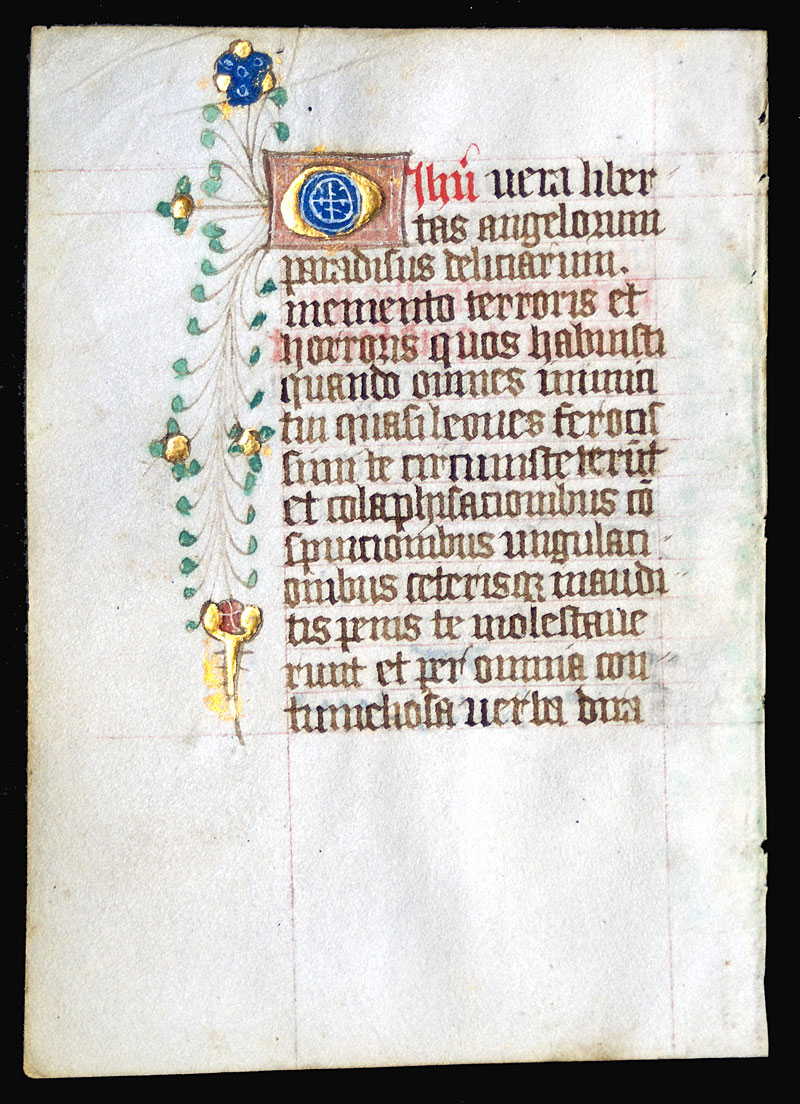 O Jhū vera liber
tas angelorum
paradisus deliciarum.
memento terroris et
horroris quos habuisti
quando omnes inimici
tui quasi leones ferocis
simi te circumsteterūt
et colaphisacionibus cō
spuicionibus ungulaci
onibus ceterisqꝫ inaudi
tis penis te molestaue
runt et per omnia con
tumeliosa uerba dira